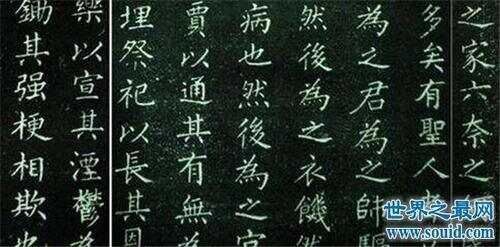 之家六奈之
多矣有聖人
為之君為之師驅
然後為之衣饑然
病也然後為之宮
賈以通其有無為
埋祭祀以長其恩
樂以宣其湮鬱為
鋤其强梗相欺也
世界之最网
www.souid.com